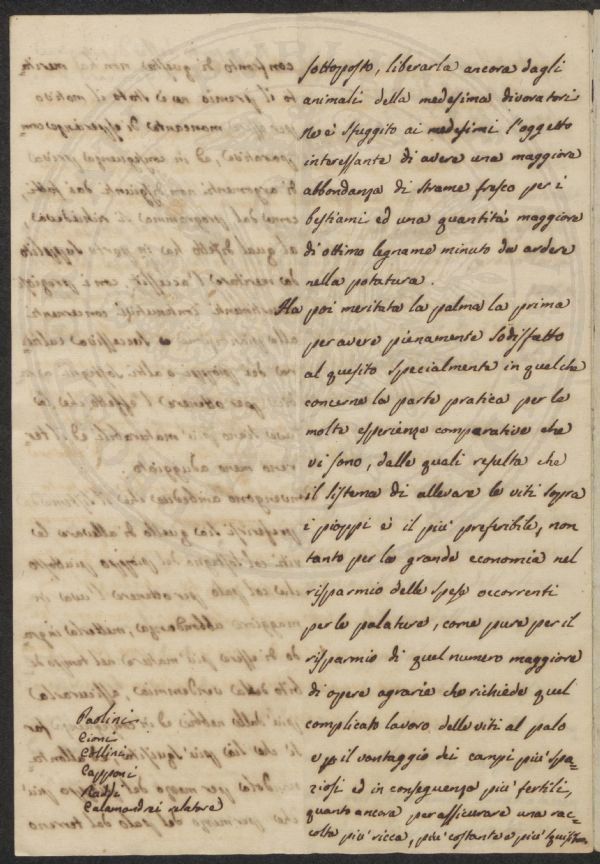 sottoposto, liberarla ancora dagli
animali della medesima divoratori
Ne è sfuggito ai medesimi l'oggetto
interessante di avere una maggiore
abbondanza di strame fresco per i
bestiami ed una quantità maggiore
di ottimo legname minuto da ardere
nella potatura.
Ha poi meritata la palma la prima
per avere pienamente sodisfatto
al quesito specialmente in quel che
concerne la parte pratica per le
molte esperienze comparative che
vi sono, dalle quali resulta che
il sistema di allevare le viti sopra
i pioppi è il più preferibile, non
tanto per la grande economia nel
risparmio delle spese occorrenti
per le palature, come pure per il
risparmio di quel numero maggiore
di opere agrarie che richiede quel
complicato lavoro delle viti al palo
e il vantaggio dei campi più spa=
ziosi ed in conseguenza più fertili,
quanto ancora per assicurare una rac=
colta più ricca, più costante e più squisita
Paolini
Cioni
Collini
Capponi
Raddi
Calamandrei relatore